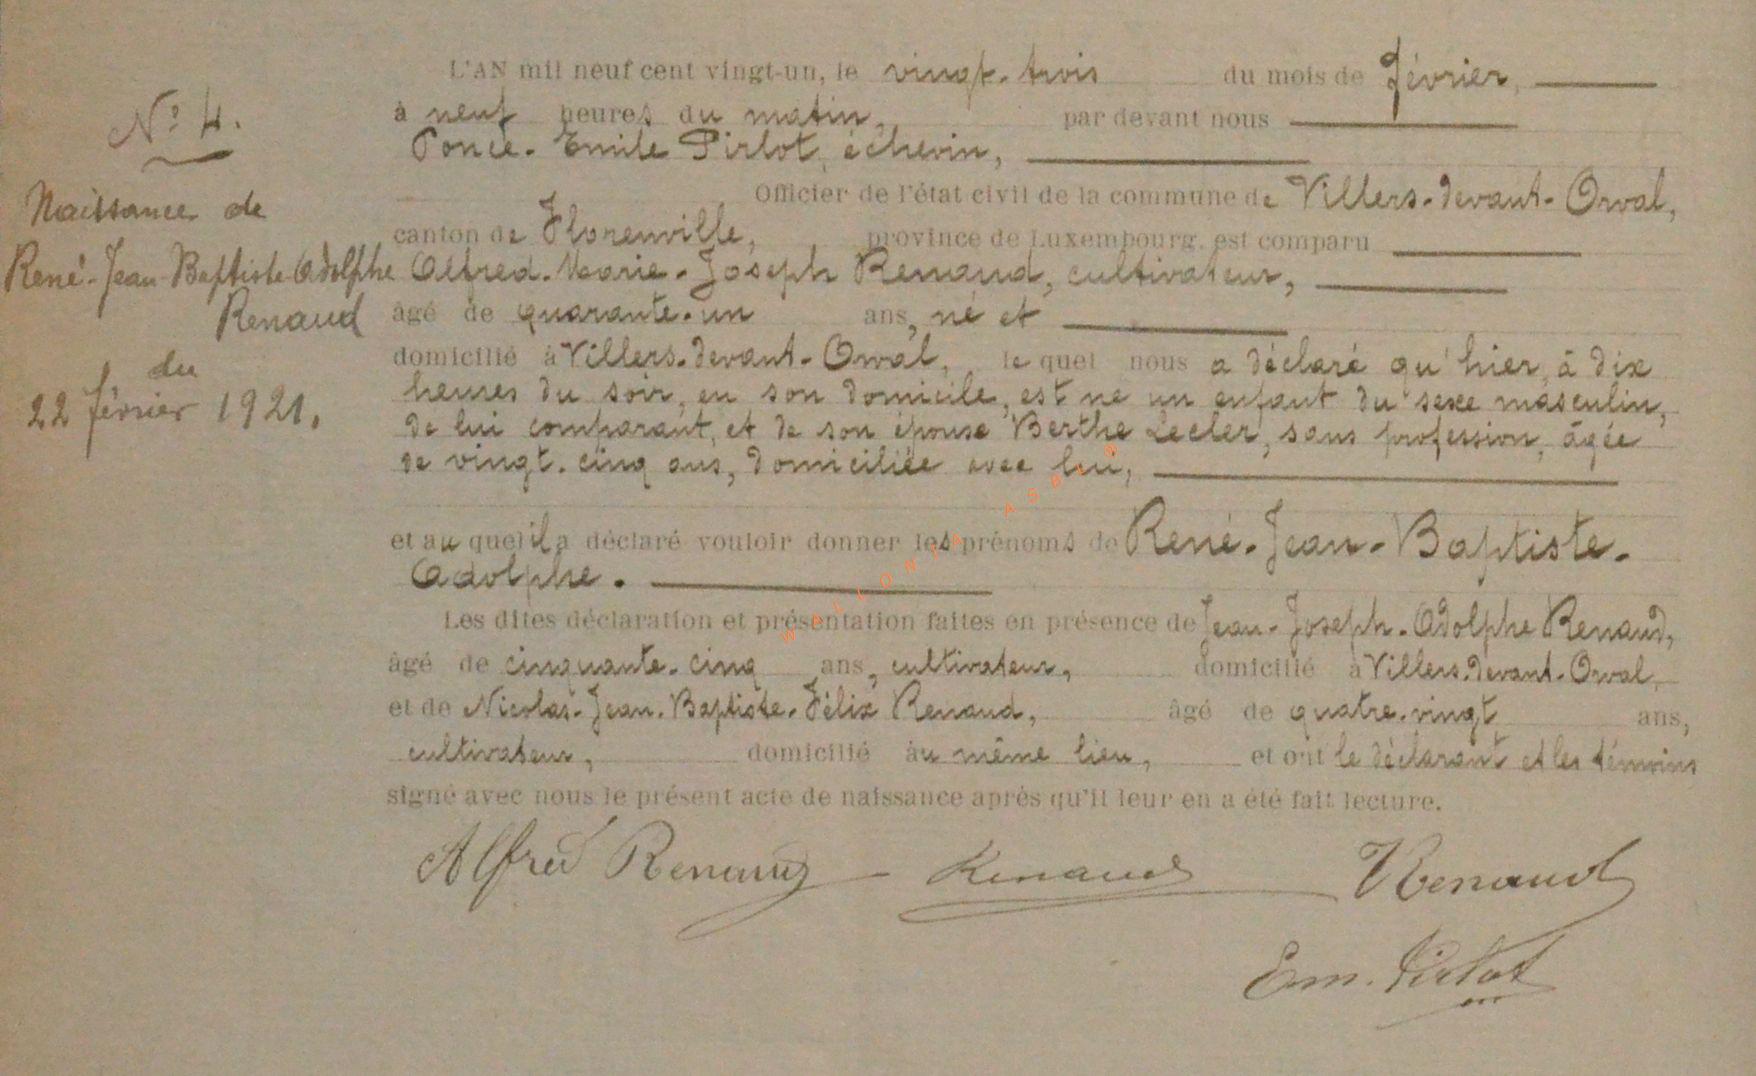 N° 4.
Naissance de
René-Jean-Baptiste-Adolphe
Renaud
du
22 février 1921.
L'AN mil neuf cent vingt-un, le vingt-trois du mois de février,
à neuf heures du matin, par devant nous
Ponce-Emile Pirlot, échevin,
Officier de l'état civil de la commune de Villers-devant-Orval,
canton de Florenville, province de Luxembourg, est comparu
Alfred-Marie-Joseph Renaud, cultivateur,
âgé de quarante-un ans, né et
domicilié à Villers-devant-Orval, le quel nous a déclaré qu'hier, à dix
heures du soir, en son domicile, est né un enfant du sexe masculin,
de lui comparant, et de son épouse Berthe Lecler, sans profession, âgée
de vingt-cinq ans, domiciliée avec lui,
et au quel il a déclaré vouloir donner les prénoms de René-Jean-Baptiste-
Adolphe.
Les dites déclaration et présentation faites en présence de Jean-Joseph-Adolphe Renaud,
âgé de cinquante-cinq ans, cultivateur, domicilié à Villers-devant-Orval,
et de Nicolas-Jean-Baptiste-Félix Renaud, âgé de quatre-vingt ans,
cultivateur, domicilié au même lieu, et ont le déclarant et les témoins
signé avec nous le présent acte de naissance après qu'il leur en a été fait lecture.
Alfred Renaud Renaud Renaud
Em. Pirlot
WALLONIA ASBL